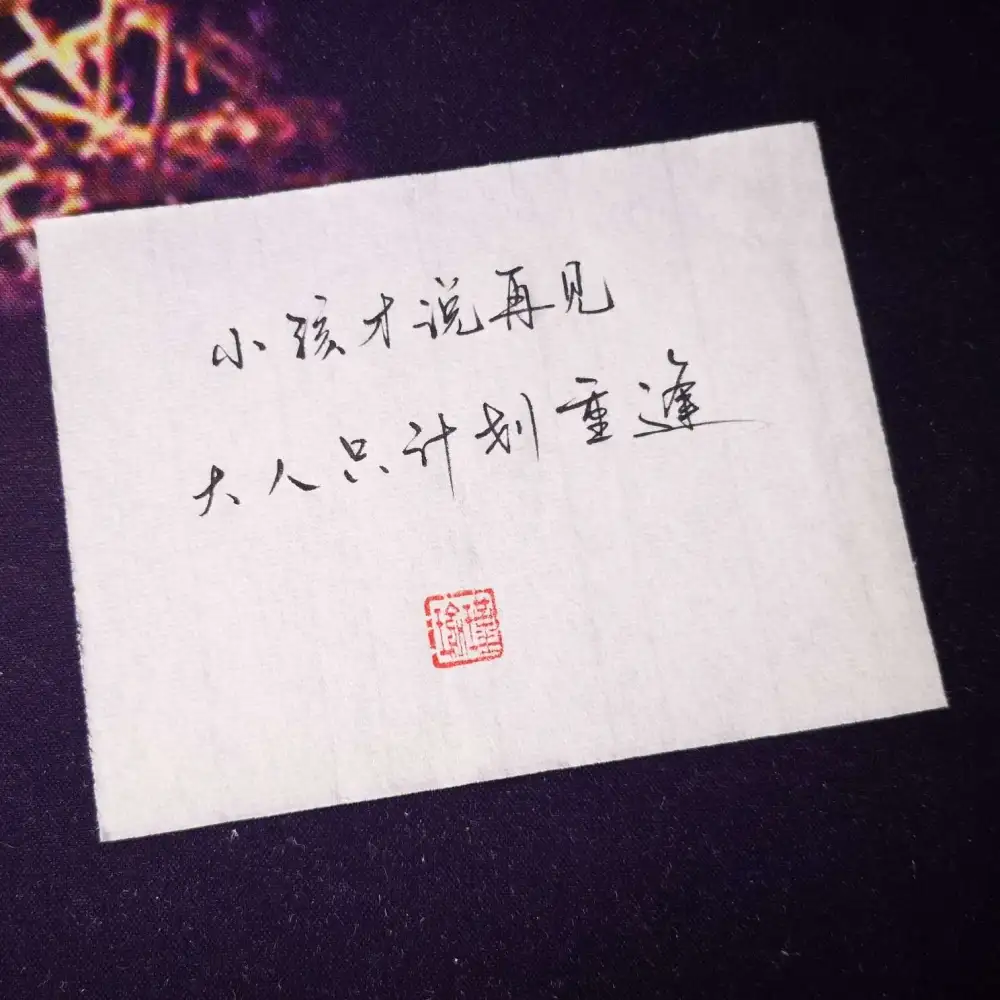 小孩才说再见
大人只计划重逢
瑾瑜